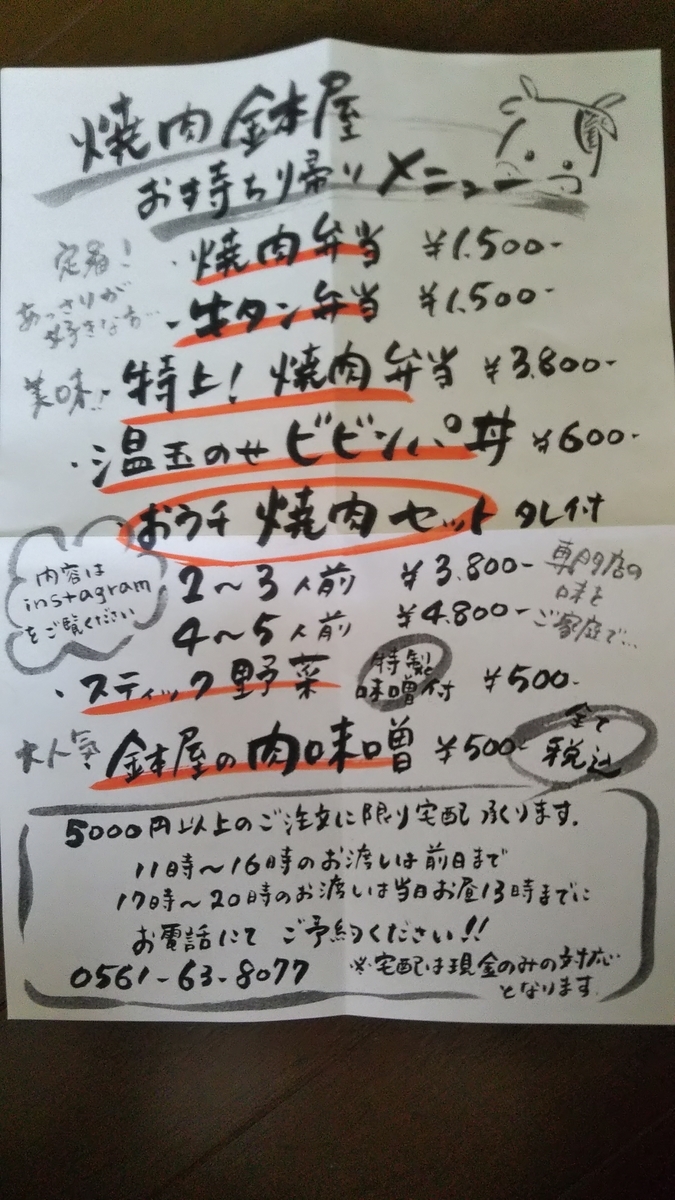 焼肉 鉢屋
お持ち帰りメニュー
定番!
・焼肉弁当 ¥1.500-
あっさりが
好きな方…
・牛タン弁当 ¥1.500-
美味!!
・特上!焼肉弁当 ¥3.800-
・温玉のせビビンバ丼 ¥600-
・おウチ焼肉セット タレ付
内容は
instagram
をご覧ください
2～3人前 ¥3.800-
4～5人前 ¥4.800-
専門店の
味を
ご家庭で…
・スティック野菜 特製味噌付 ¥500-
大人気
鉢屋の肉味噌 ¥500-
全て
税込
5000円以上のご注文に限り宅配承ります.
11時～16時のお渡しは前日まで
17時～20時のお渡しは当日お昼13時までに
お電話にて ご予約ください!!
0561-63-8077
※宅配は現金のみの対応
となります.